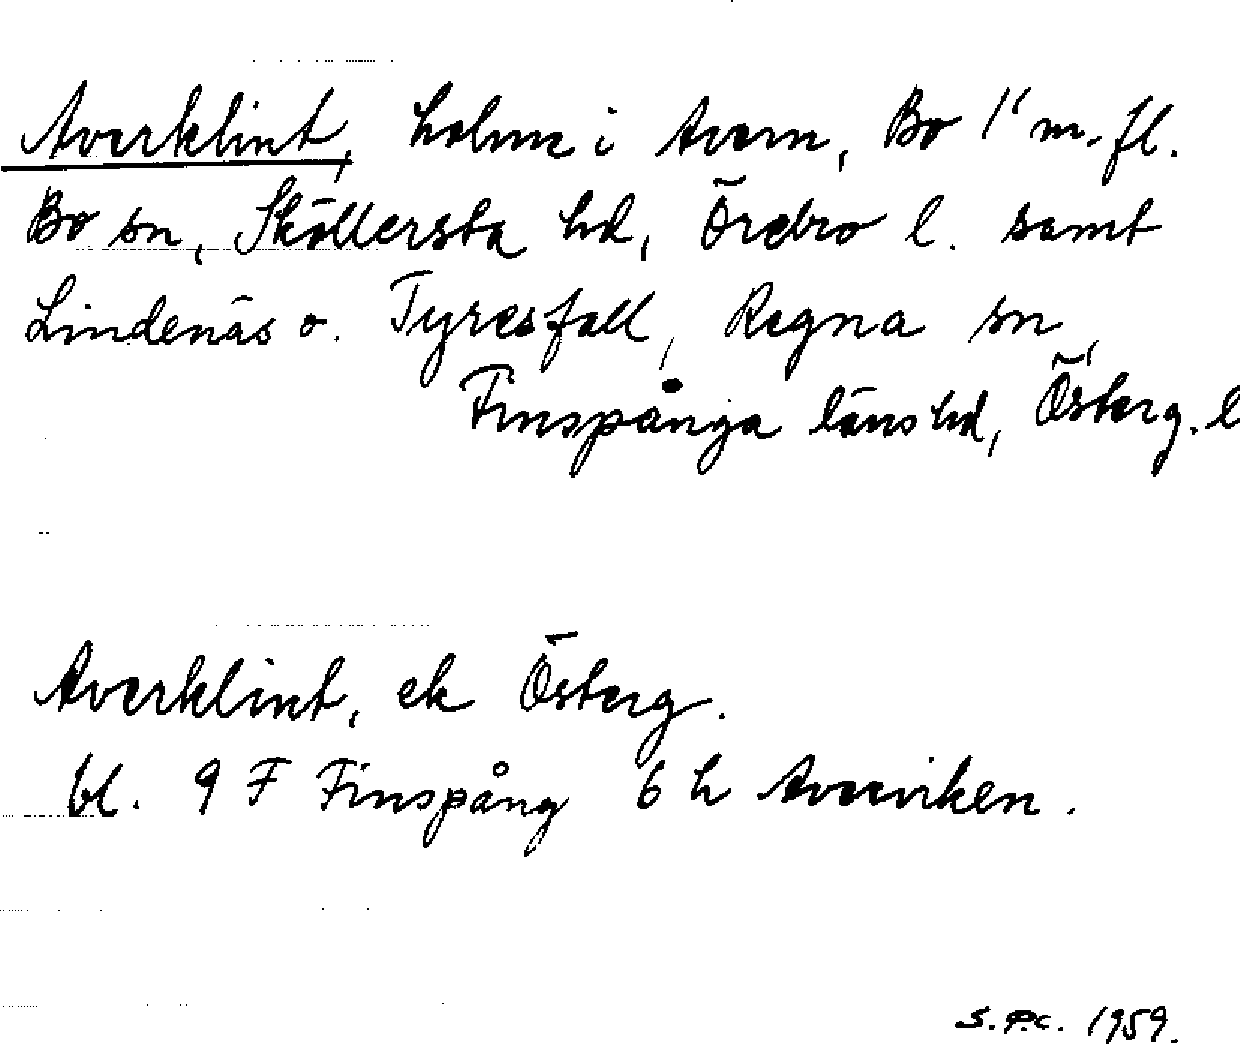 Averklint, holme i Avern, Bo 1¹ m. fl.
Bo sn, Sköllersta hd, Örebro l. samt
Lindenäs o. Tyresfall, Regna sn,
Finspånga läns hd, Österg. l
Averklint, ek Österg.
bl. 9 F Finspång 6 h Averviken.
S.P.C. 1959.